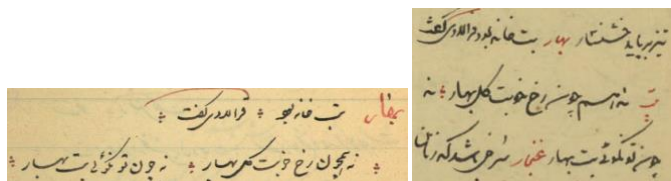 بهار بت خانه بود فرالاوی گفت
نه همچون رخ خوبت گل بهار نه چون تو نکوئی بت بهار
خشنشار بهار بت خانه بود فرالاوی گفت
چون رخ خوبت گل بهار نه
چون تو نکوئی بت بهار غنجار سرخی باشد که زنان